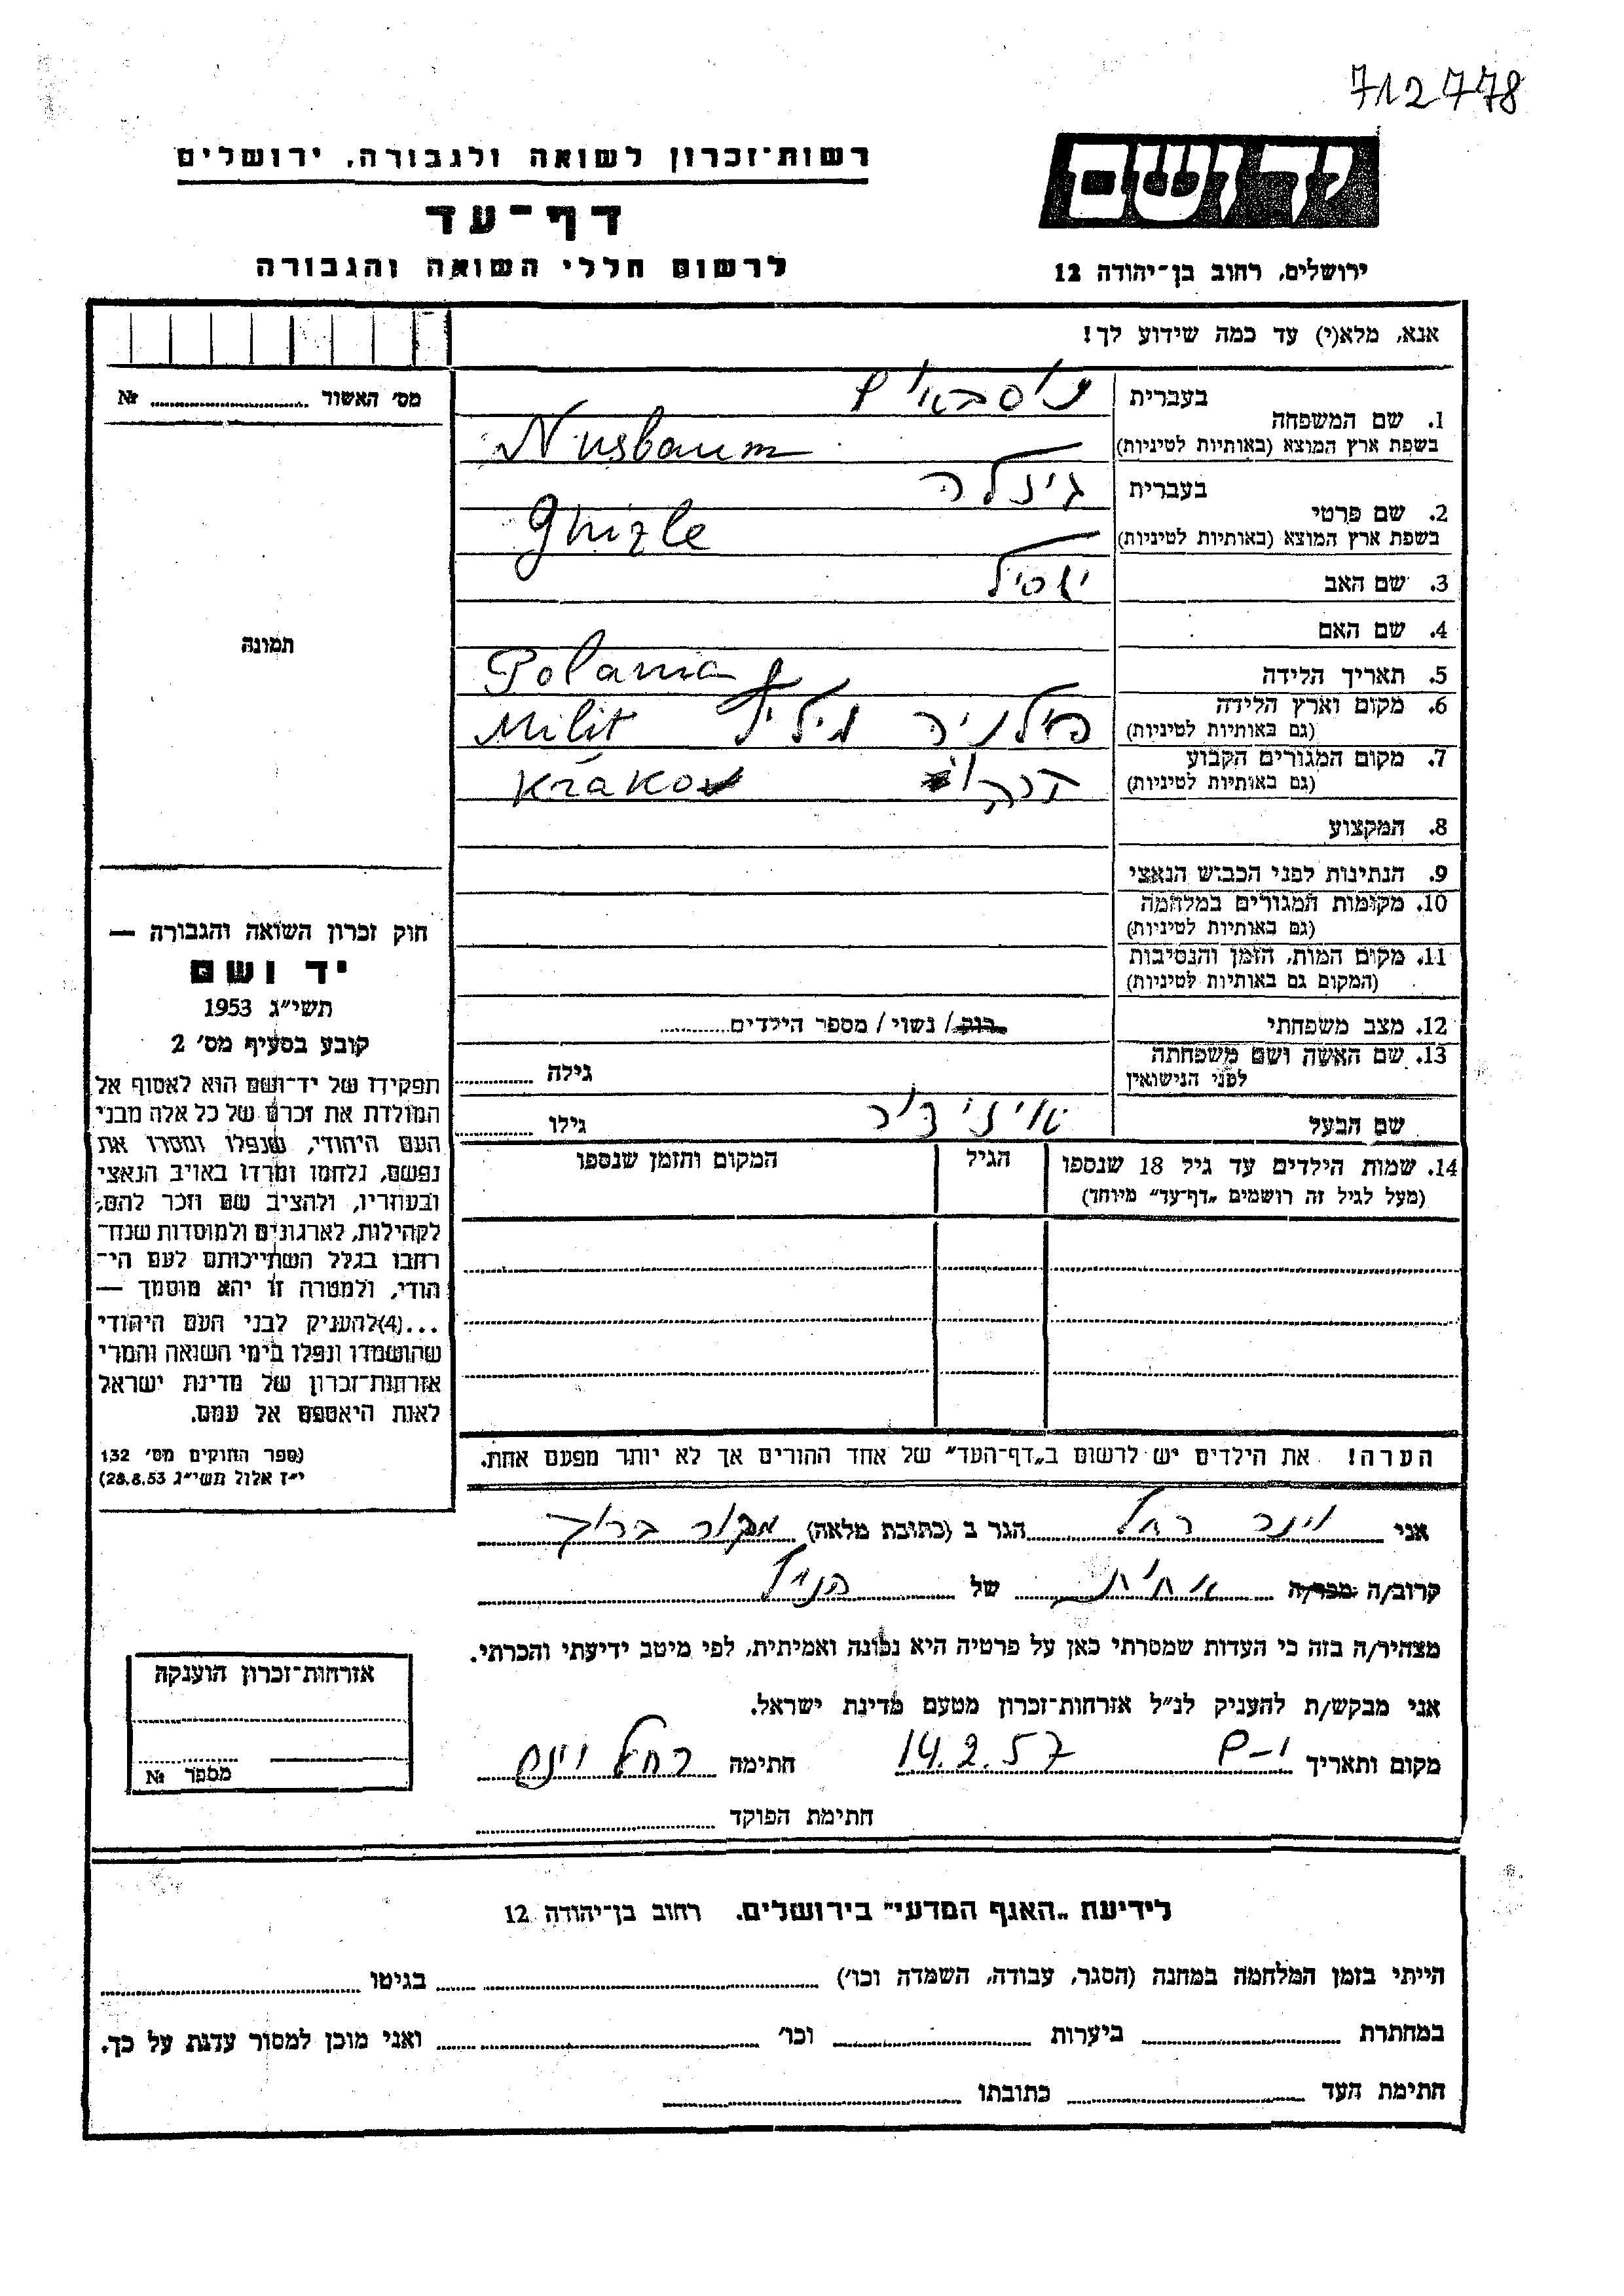 712778
יד ושם
ירושלים, רחוב בן־יהודה 12
רשות־זכרון לשואה ולגבורה, ירושלים
דף־עד
לרשום חללי השואה והגבורה
אנא, מלא(י) עד כמה שידוע לך!
מס׳ האשור № 
תמונה
בעברית נוסבאום
1. שם המשפחה
בשפת ארץ המוצא (באותיות לטיניות) Nusbaum
בעברית גיזלה
2. שם פרטי
בשפת ארץ המוצא (באותיות לטיניות) Ghizle
3. שם האב
4. שם האם
5. תאריך הלידה
Polania
6. מקום וארץ הלידה
(גם באותיות לטיניות) Milit
7. מקום המגורים הקבוע
(גם באותיות לטיניות) Krakov
8. המקצוע
9. הנתינות לפני הכבוש הנאצי
10. מקומות המגורים במלחמה
(גם באותיות לטיניות)
11. מקום המות, הזמן והנסיבות
(המקום גם באותיות לטיניות)
12. מצב משפחתי רווק / נשוי / מספר הילדים
13. שם האשה ושם משפחתה
לפני הנישואין גילה
שם הבעל גילו
14. שמות הילדים עד גיל 18 שנספו הגיל המקום והזמן שנספו
(מעל לגיל זה רושמים „דף־עד״ מיוחד)
הערה! את הילדים יש לרשום ב„דף־העד״ של אחד ההורים אך לא יותר מפעם אחת.
חוק זכרון השואה והגבורה —
יד ושם
תשי״ג 1953
קובע בסעיף מס׳ 2
תפקידו של יד־ושם הוא לאסוף אל
המולדת את זכרם של כל אלה מבני
העם היהודי, שנפלו ומסרו את
נפשם, נלחמו ומרדו באויב הנאצי
ובעוזריו, ולהציב שם וזכר להם,
לקהילות, לארגונים ולמוסדות שנח־
רחבו בגלל השתייכותם לעם הי־
הודי, ולמטרה זו יהא מוסמך —
...(4)להעניק לבני העם היהודי
שהושמדו ונפלו בימי השואה והמרי
אזרחות־זכרון של מדינת ישראל
לאות היאספם אל עמם.
(ספר החוקים מס׳ 132
י״ז אלול תשי״ג 28.8.53)
אני וינר רחל הגר ב (כתובת מלאה) מקור ברוך
קרוב/ה מכר/ה אחות של הנ״ל
מצהיר/ה בזה כי העדות שמסרתי כאן על פרטיה היא נכונה ואמיתית, לפי מיטב ידיעתי והכרתי.
אני מבקש/ת להעניק לנ״ל אזרחות־זכרון מטעם מדינת ישראל.
מקום ותאריך י-ם 14.2.57 חתימה רחל וינר
חתימת הפוקד
אזרחות־זכרון הוענקה
מספר №
לידיעת „האגף המדעי״ בירושלים, רחוב בן־יהודה 12
הייתי בזמן המלחמה במחנה (הסגר, עבודה, השמדה וכו׳) בגיטו
במחתרת ביערות וכו׳ ואני מוכן למסור עדות על כך.
חתימת העד כתובתו